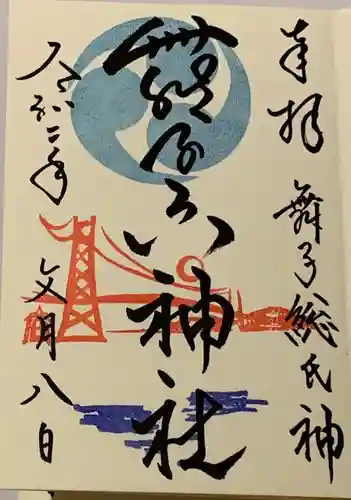 奉拝 舞子総氏神
舞子六神社
令和二年
文月八日